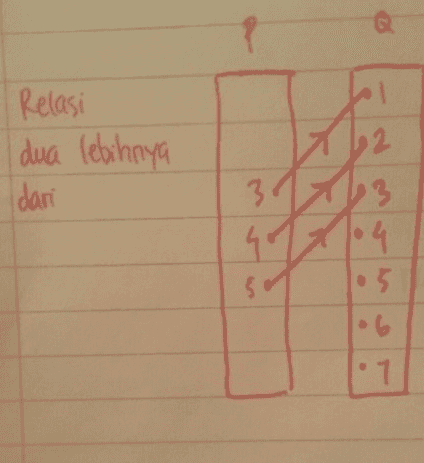 P Q
Relasi 1
dua lebihnya 2
dari 3 3
4 4
5 5
6
7